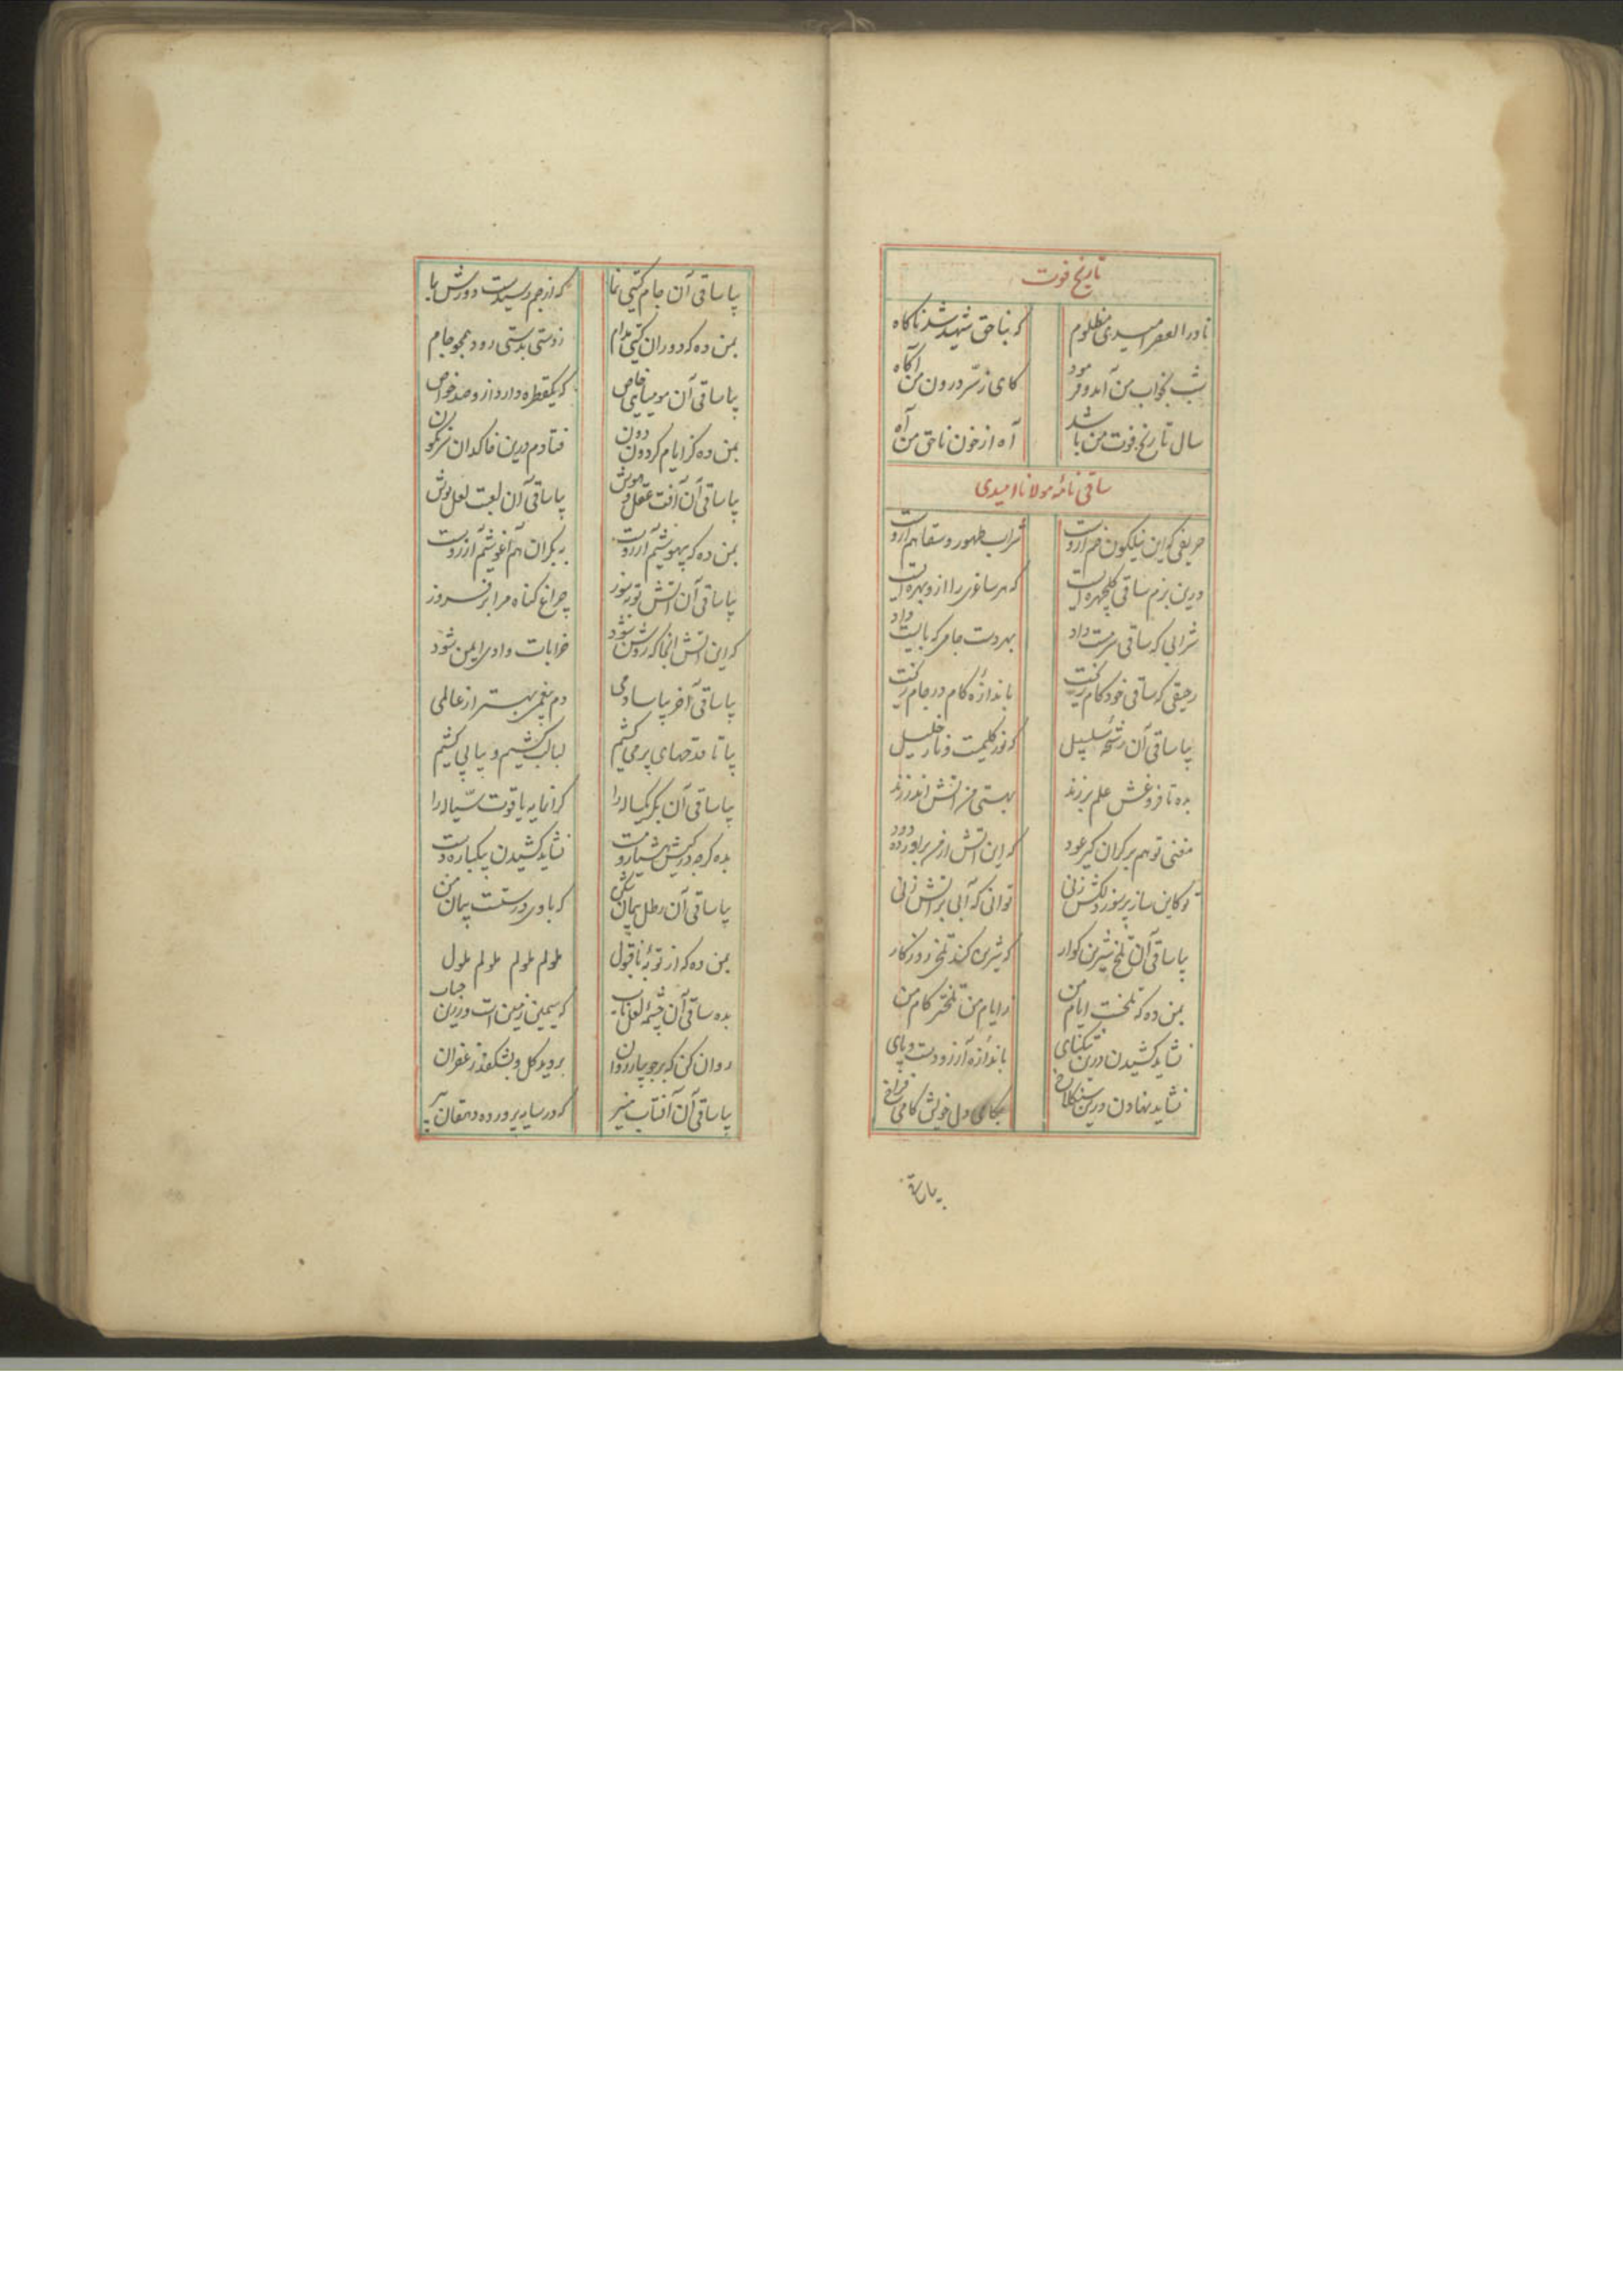 تاریخ فوت
نادر العصر امیدی مظلوم که بناحق شهید شد ناکاه
شب بخواب من آمد و فرمود کای ز سر درون من آکاه
سال تاریخ فوت من باشد آه از خون ناحق من آه
ساقی نامه مولانا امیدی
حریفی که این نیلکون خم ازوست شراب طهور و سقاهم ازوست
درین بزم ساقی کلچهره ایست که هر ساغری را ازو بهره ایست
شرابی که ساقی سرمست داد بهر دست جامی که بایست داد
رحیقی که ساقی خودکام ریخت باندازه کام در جام ریخت
بیا ساقی آن رشحه سلسبیل که نور کلیمست و نار خلیل
بده تا فروغش علم بر زند بهستی من آتش اندر زند
مغنی تو هم بر کران کیر عود که این آتش از من برآورد دود
تو کاین ساز پرسوز دلکش زنی توانی که آبی بر آتش زنی
بیا ساقی آن تلخ شیرین کوار که شیرین کند تلخی روزکار
بمن ده که تلخست ایام من ز ایام من تلختر کام من
نشاید کشیدن درین تنکنای باندازه آرزو دست و پای
نشاید نهادن درین سنکلاخ بکام دل خویش کامی فراخ
بیا ساقی
بیا ساقی آن جام کیتی نما که از جم رسیدست دورش بما
بمن ده که دوران کیتی مدام ز دستی بدستی رود همچو جام
بیا ساقی آن مومیایی خاص که یکقطره دارد ازو صد خواص
بمن ده کز ایام کردون دون فتادم درین خاکدان سرنکون
بیا ساقی آن آفت عقل و هوش بیا ساقی آن لعبت لعل پوش
بمن ده که بیهوشیم آرزوست به بکران هم آغوشیم آرزوست
بیا ساقی آن آتش توبه سوز چراغ کناه مرا بر فروز
که این آتش آنجا که روشن شود خرابات وادی ایمن شود
بیا ساقی آخر بیاسا دمی دم بیغمی بهتر از عالمی
بیا تا قدحهای پر می کشیم لبالب کشیم و پیاپی کشیم
بیا ساقی آن بکر یکساله را کرانمایه یاقوت سیاله را
بده کرچه در کیش هشیار و مست نشاید کشیدن بیکباره دست
بیا ساقی آن رطل پیمان شکن که با وی درستست پیمان من
بمن ده که از توبه ناقبول ملولم ملولم ملولم ملول
بده ساقی آن چشمه لعل ناب که سیمین زمین است و زرین حباب
روان کن که بر جویبار روان بروید کل و بشکفد زعفران
بیا ساقی آن آفتاب منیر که در سایه پرورده دهقان پیر